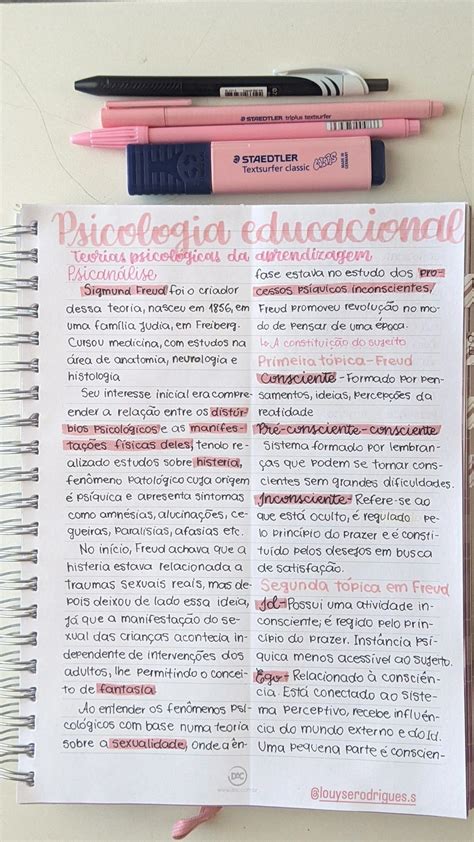 STAEDTLER triplus textsurfer
STAEDTLER
Textsurfer classic
MADE IN
GERMANY
Psicologia educacional
Teorias psicológicas da aprendizagem
Psicanálise
Sigmund Freud foi o criador
dessa teoria, nasceu em 1856, em
uma família judia, em Freiberg.
Cursou medicina, com estudos na
área de anatomia, neurologia e
histologia
Seu interesse inicial era compre-
ender a relação entre os distúr-
bios psicológicos e as manifes-
tações físicas deles, tendo re-
alizado estudos sobre histeria,
fenômeno patológico cuja origem
é psíquica e apresenta sintomas
como amnésias, alucinações, ce-
gueiras, paralisias, afasias etc.
No início, Freud achava que a
histeria estava relacionada a
traumas sexuais reais, mas de-
pois deixou de lado essa ideia,
já que a manifestação do se-
xual das crianças acontecia in-
dependente de intervenções dos
adultos, lhe permitindo o concei-
to de fantasia.
Ao entender os fenômenos psi-
cológicos com base numa teoria
sobre a sexualidade, onde a ên-
fase estava no estudo dos pro-
cessos psíquicos inconscientes,
Freud promoveu revolução no mo-
do de pensar de uma época.
↳ A constituição do sujeito
Primeira tópica - Freud
Consciente - Formado por pen-
samentos, ideias, percepções da
realidade
Pré-consciente-consciente
Sistema formado por lembran-
ças que podem se tornar cons-
cientes sem grandes dificuldades.
Inconsciente - Refere-se ao
que está oculto, é regulado pe-
lo princípio do prazer e é consti-
tuído pelos desejos em busca
de satisfação.
Segunda tópica em Freud
Id - Possui uma atividade in-
consciente; é regido pelo prin-
cípio do prazer. Instância psí-
quica menos acessível ao sujeito.
Ego - Relacionado à consciên-
cia. Está conectado ao siste-
ma perceptivo, recebe influên-
cia do mundo externo e do Id.
Uma pequena parte é conscien-
DAC
@louyserodrigues.s